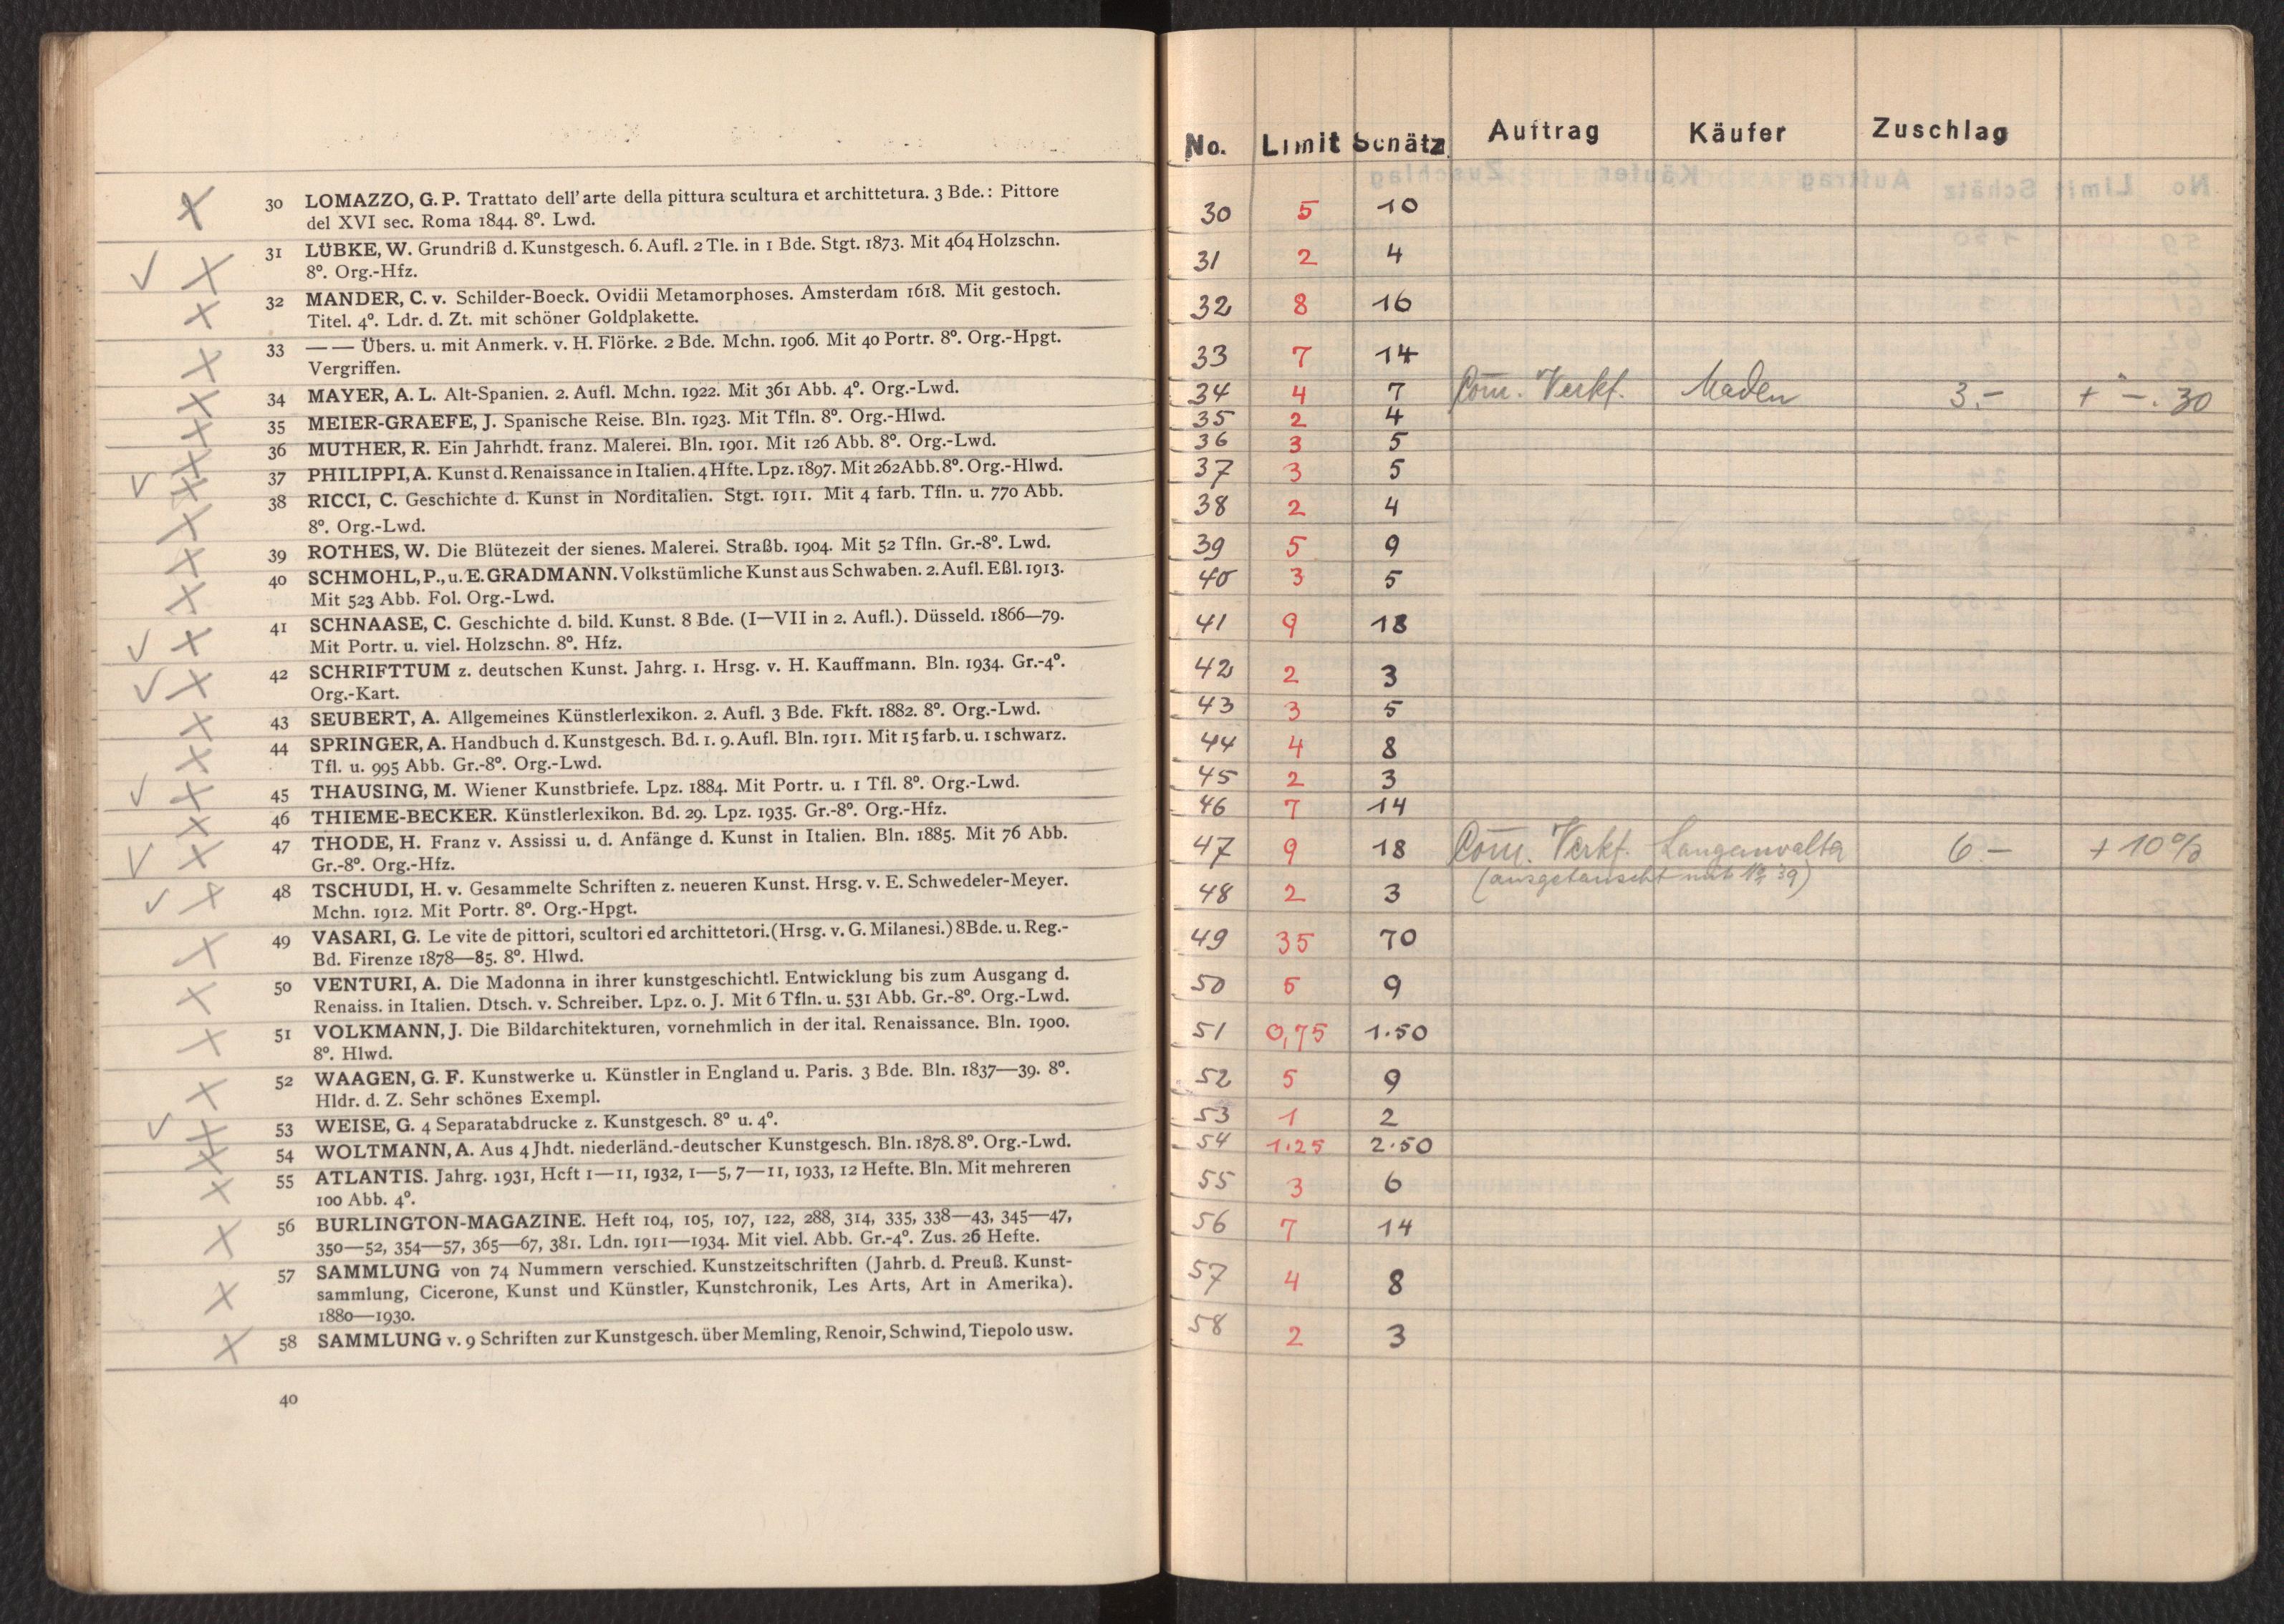 30 LOMAZZO, G. P. Trattato dell' arte della pittura scultura et archittetura. 3 Bde.: Pittore
del XVI sec. Roma 1844. 8º. Lwd.
31 LÜBKE, W. Grundriß d. Kunstgesch. 6. Aufl. 2 Tle. in 1 Bde. Stgt. 1873. Mit 464 Holzschn.
8º. Org.-Hfz.
32 MANDER, C. v. Schilder-Boeck. Ovidii Metamorphoses. Amsterdam 1618. Mit gestoch.
Titel. 4º. Ldr. d. Zt. mit schöner Goldplakette.
33 — — Übers. u. mit Anmerk. v. H. Flörke. 2 Bde. Mchn. 1906. Mit 40 Portr. 8º. Org.-Hpgt.
Vergriffen.
34 MAYER, A. L. Alt-Spanien. 2. Aufl. Mchn. 1922. Mit 361 Abb. 4º. Org.-Lwd.
35 MEIER-GRAEFE, J. Spanische Reise. Bln. 1923. Mit Tfln. 8º. Org.-Hlwd.
36 MUTHER, R. Ein Jahrhdt. franz. Malerei. Bln. 1901. Mit 126 Abb. 8º. Org.-Lwd.
37 PHILIPPI, A. Kunst d. Renaissance in Italien. 4 Hfte. Lpz. 1897. Mit 262 Abb. 8º. Org.-Hlwd.
38 RICCI, C. Geschichte d. Kunst in Norditalien. Stgt. 1911. Mit 4 farb. Tfln. u. 770 Abb.
8º. Org.-Lwd.
39 ROTHES, W. Die Blütezeit der sienes. Malerei. Straßb. 1904. Mit 52 Tfln. Gr.-8º. Lwd.
40 SCHMOHL, P., u. E. GRADMANN. Volkstümliche Kunst aus Schwaben. 2. Aufl. Eßl. 1913.
Mit 523 Abb. Fol. Org.-Lwd.
41 SCHNAASE, C. Geschichte d. bild. Kunst. 8 Bde. (I—VII in 2. Aufl.). Düsseld. 1866—79.
Mit Portr. u. viel. Holzschn. 8º. Hfz.
42 SCHRIFTTUM z. deutschen Kunst. Jahrg. 1. Hrsg. v. H. Kauffmann. Bln. 1934. Gr.-4º.
Org.-Kart.
43 SEUBERT, A. Allgemeines Künstlerlexikon. 2. Aufl. 3 Bde. Fkft. 1882. 8º. Org.-Lwd.
44 SPRINGER, A. Handbuch d. Kunstgesch. Bd. 1. 9. Aufl. Bln. 1911. Mit 15 farb. u. 1 schwarz.
Tfl. u. 995 Abb. Gr.-8º. Org.-Lwd.
45 THAUSING, M. Wiener Kunstbriefe. Lpz. 1884. Mit Portr. u. 1 Tfl. 8º. Org.-Lwd.
46 THIEME-BECKER. Künstlerlexikon. Bd. 29. Lpz. 1935. Gr.-8º. Org.-Hfz.
47 THODE, H. Franz v. Assissi u. d. Anfänge d. Kunst in Italien. Bln. 1885. Mit 76 Abb.
Gr.-8º. Org.-Hfz.
48 TSCHUDI, H. v. Gesammelte Schriften z. neueren Kunst. Hrsg. v. E. Schwedeler-Meyer.
Mchn. 1912. Mit Portr. 8º. Org.-Hpgt.
49 VASARI, G. Le vite de pittori, scultori ed archittetori. (Hrsg. v. G. Milanesi.) 8 Bde. u. Reg.-
Bd. Firenze 1878—85. 8º. Hlwd.
50 VENTURI, A. Die Madonna in ihrer kunstgeschichtl. Entwicklung bis zum Ausgang d.
Renaiss. in Italien. Dtsch. v. Schreiber. Lpz. o. J. Mit 6 Tfln. u. 531 Abb. Gr.-8º. Org.-Lwd.
51 VOLKMANN, J. Die Bildarchitekturen, vornehmlich in der ital. Renaissance. Bln. 1900.
8º. Hlwd.
52 WAAGEN, G. F. Kunstwerke u. Künstler in England u. Paris. 3 Bde. Bln. 1837—39. 8º.
Hldr. d. Z. Sehr schönes Exempl.
53 WEISE, G. 4 Separatabdrucke z. Kunstgesch. 8º u. 4º.
54 WOLTMANN, A. Aus 4 Jhdt. niederländ.-deutscher Kunstgesch. Bln. 1878. 8º. Org.-Lwd.
55 ATLANTIS. Jahrg. 1931, Heft 1—11, 1932, 1—5, 7—11, 1933, 12 Hefte. Bln. Mit mehreren
100 Abb. 4º.
56 BURLINGTON-MAGAZINE. Heft 104, 105, 107, 122, 288, 314, 335, 338—43, 345—47,
350—52, 354—57, 365—67, 381. Ldn. 1911—1934. Mit viel. Abb. Gr.-4º. Zus. 26 Hefte.
57 SAMMLUNG von 74 Nummern verschied. Kunstzeitschriften (Jahrb. d. Preuß. Kunst-
sammlung, Cicerone, Kunst und Künstler, Kunstchronik, Les Arts, Art in Amerika).
1880—1930.
58 SAMMLUNG v. 9 Schriften zur Kunstgesch. über Memling, Renoir, Schwind, Tiepolo usw.
40
No. Limit Schätz Auftrag Käufer Zuschlag
30 5 10
31 2 4
32 8 16
33 7 14
34 4 7 Com. Verkf. Maden 3.- + -.30
35 2 4
36 3 5
37 3 5
38 2 4
39 5 9
40 3 5
41 9 18
42 2 3
43 3 5
44 4 8
45 2 3
46 7 14
47 9 18 Com. Verkf. 6.- + 10%
(ausgetauscht mit № 39)
48 2 3
49 35 70
50 5 9
51 0,75 1.50
52 5 9
53 1 2
54 1.25 2.50
55 3 6
56 7 14
57 4 8
58 2 3